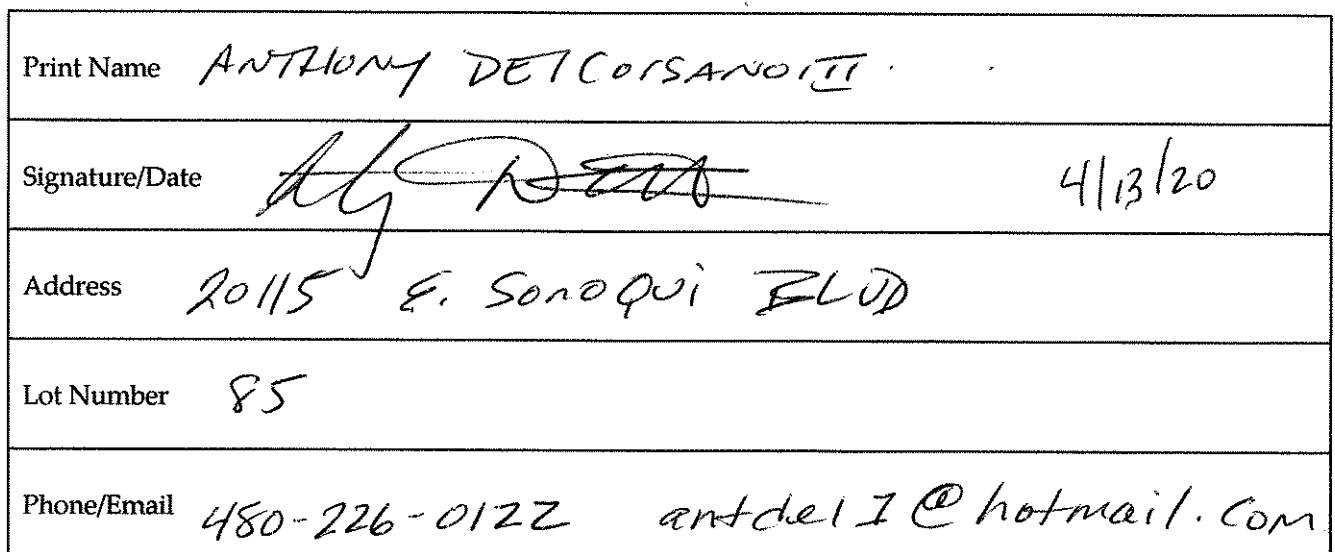 Print Name ANTHONY DEICOISANO III
Signature/Date 4/13/20
Address 20115 E. SONOQUI BLVD
Lot Number 85
Phone/Email 480-226-0122 antdel1@hotmail.com